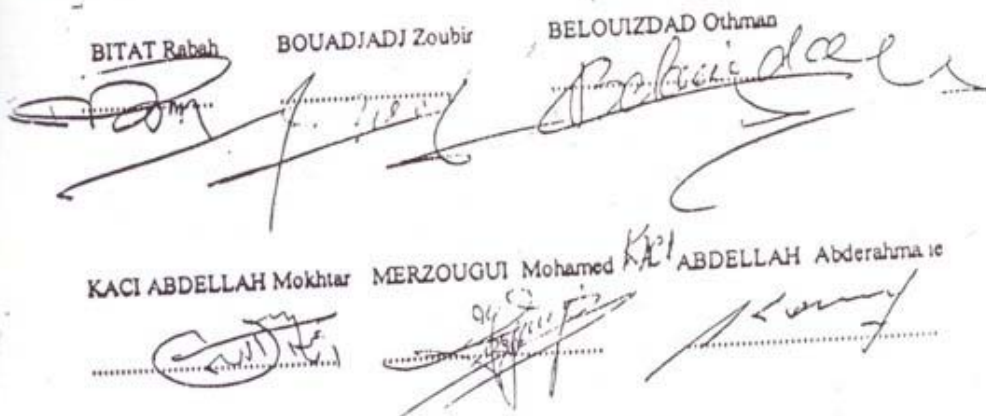 BITAT Rabah BOUADJADJ Zoubir BELOUIZDAD Othman
Belouizdad
KACI ABDELLAH Mokhtar MERZOUGUI Mohamed KACI ABDELLAH Abderahmane